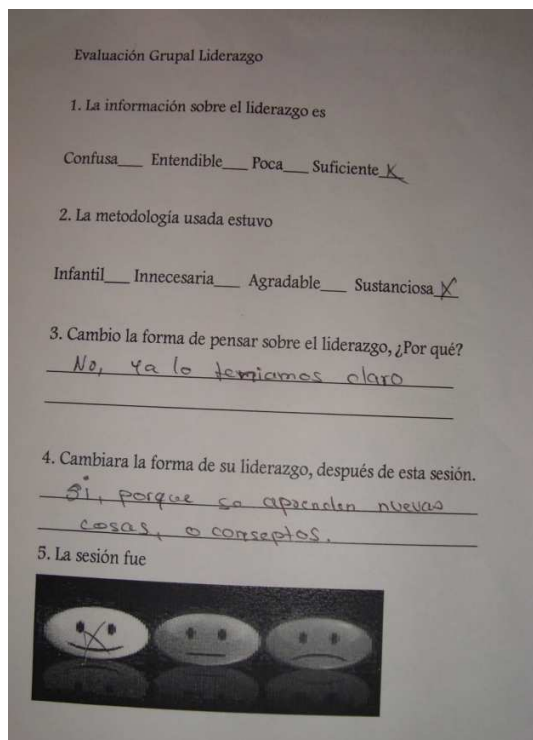 Evaluación Grupal Liderazgo
1. La información sobre el liderazgo es
Confusa___ Entendible___ Poca___ Suficiente_X_
2. La metodología usada estuvo
Infantil___ Innecesaria___ Agradable___ Sustanciosa_X_
3. Cambio la forma de pensar sobre el liderazgo, ¿Por qué?
No, ya lo teniamos claro
4. Cambiara la forma de su liderazgo, después de esta sesión.
Si, porque se aprenden nuevas
cosas, o conseptos.
5. La sesión fue